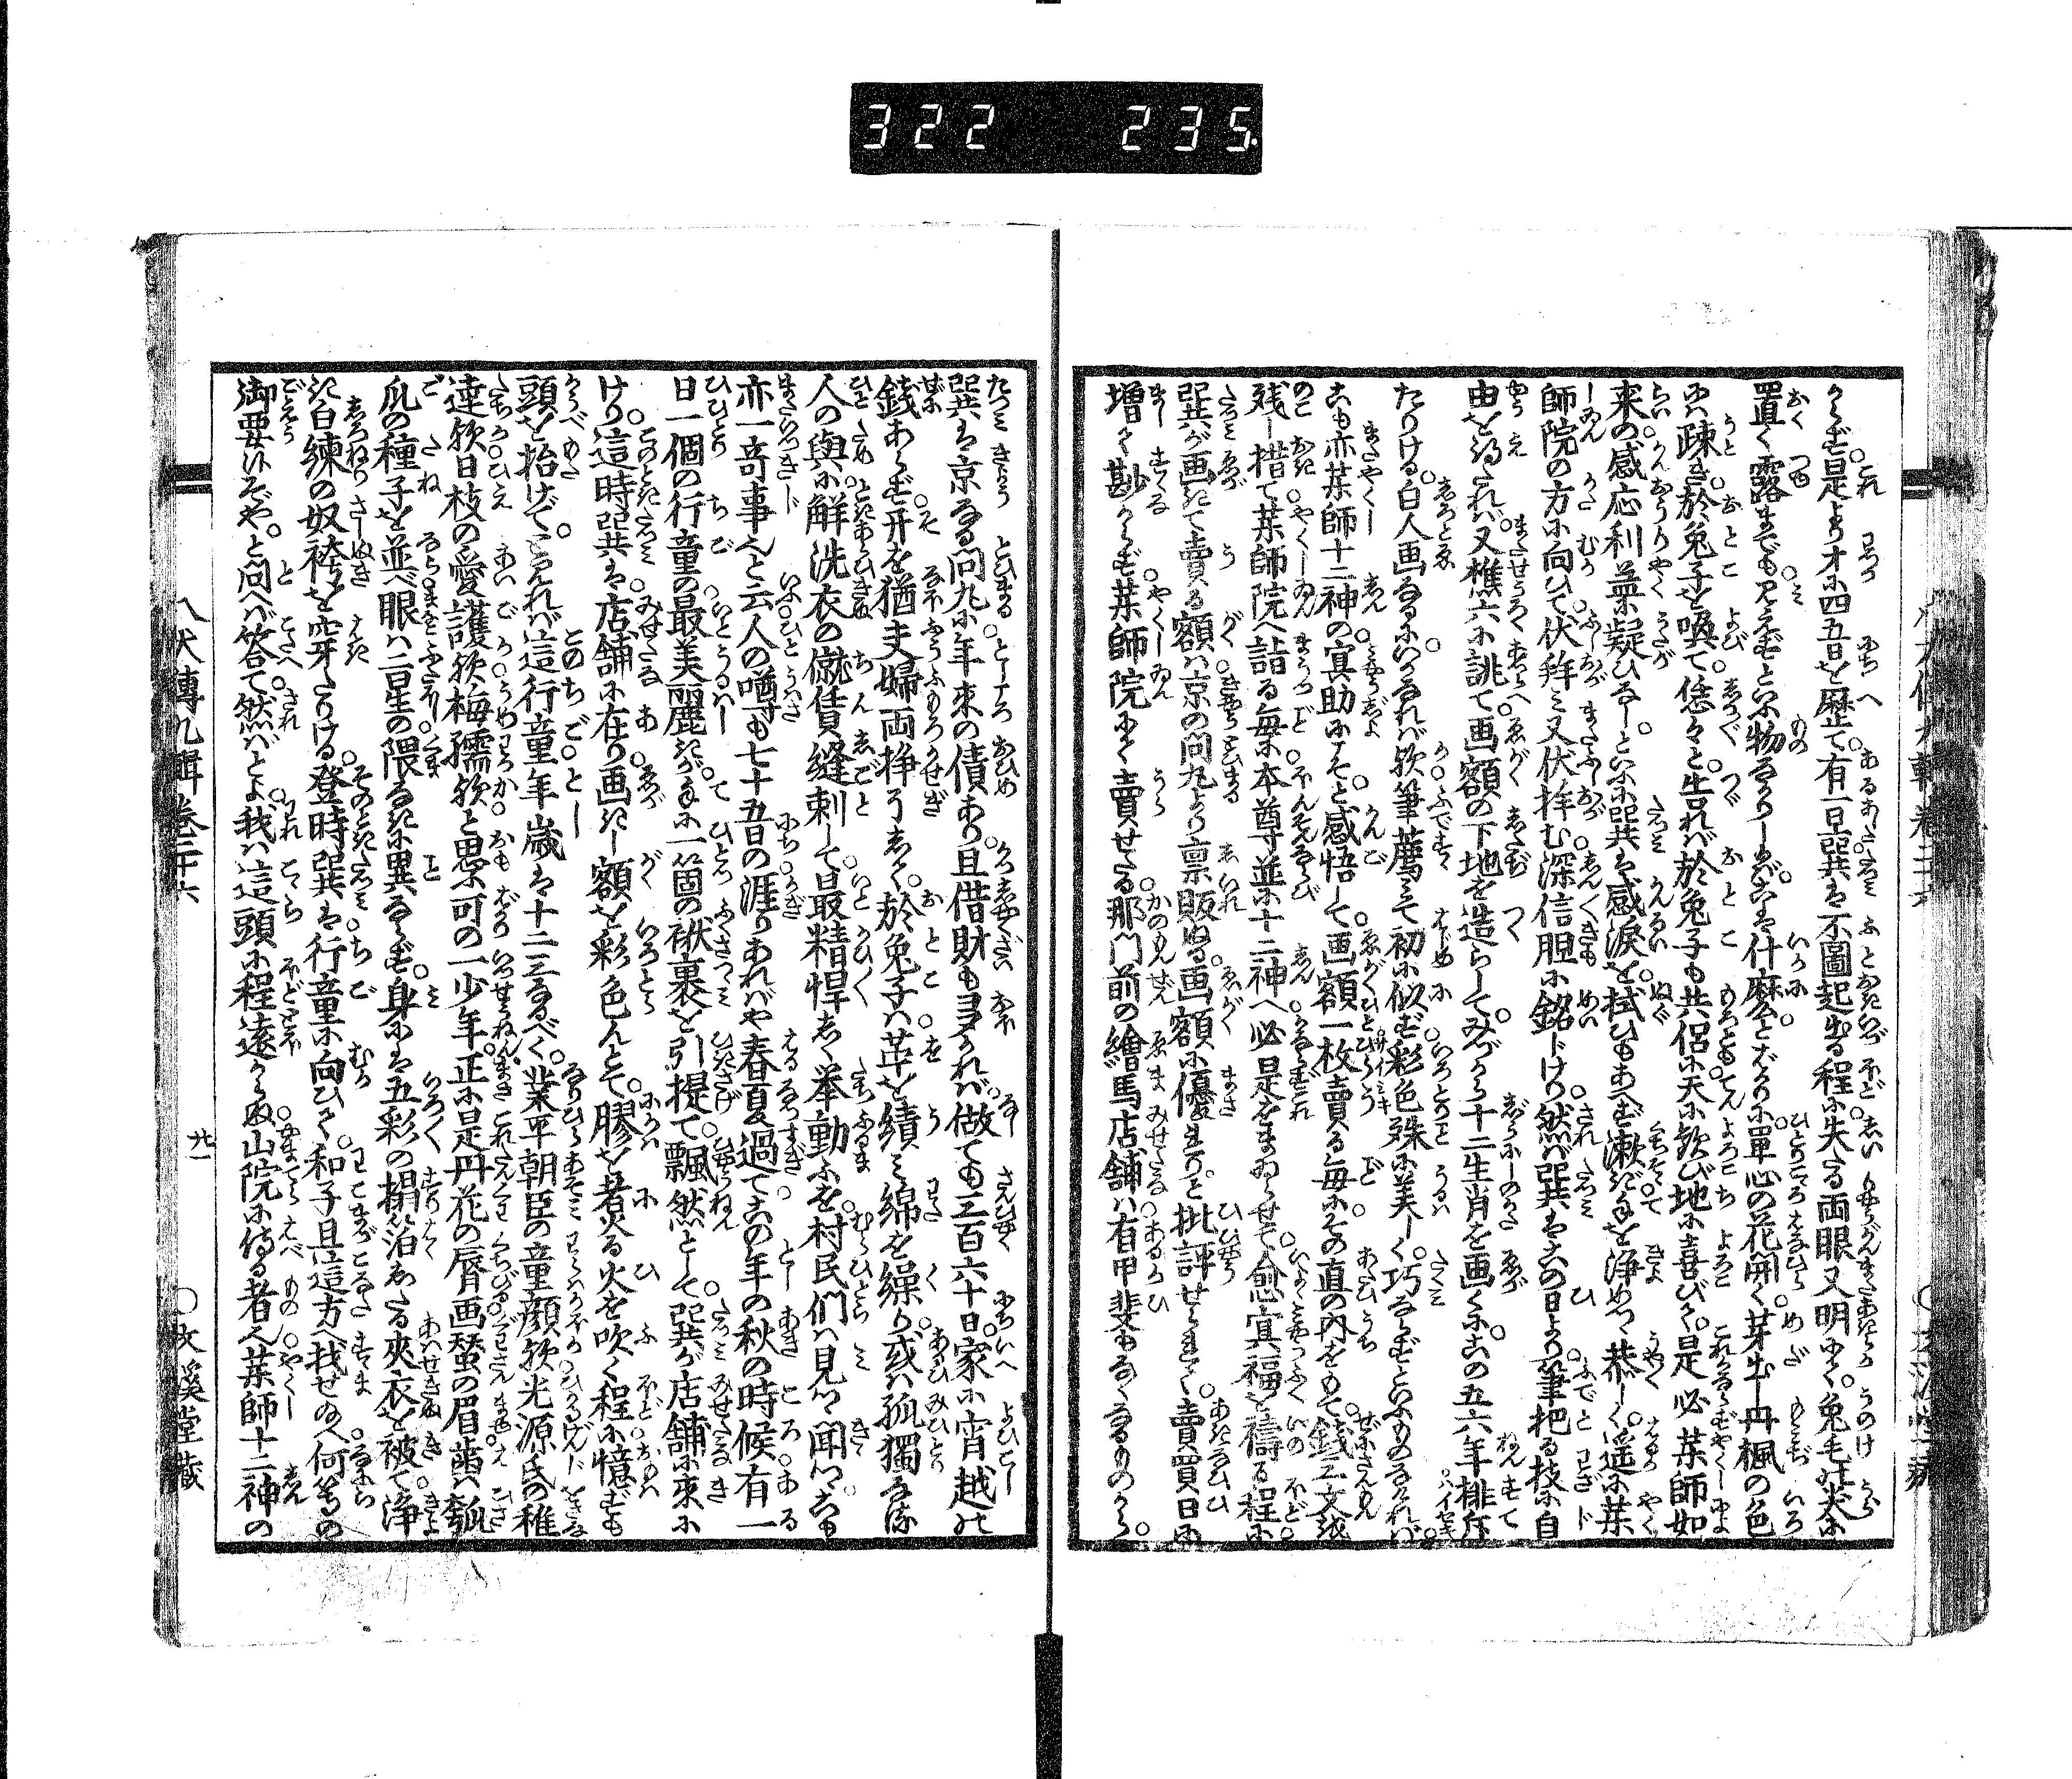 322 235
からず。是より才に四五日を歴て。有一旦巽は不圖起出る程に。失たる両眼又明にて。兔毛の尖に
置く露までも。見えずといふ物なかりしが。こは什麼とばかりに。単心の花開く。芽出し丹楓の色
には疎き。於兔子を喚て。恁々と生口れば。於兔子も共侶に。天に歓び地に喜びて。是必薬師如
来の。感応利益疑ひなしといふに。巽は感涙を。拭ひもあへず漱ぎ。手を浄めつゝ恭しく。遥に薬
師院の方に向ひて。伏拝み又伏拝む。深信胆に銘じけり。然ば巽はこの日より。筆把る技に自
由を得たれば。又樵六に誂て。画額の下地を造らして。みづから十二生肖を画くに。この五六年排斥
たりける。白人画なるに。いかなれば欤筆薦みて。初に似ず彩色殊に美しく。巧ならずといふものなければ。
こも亦薬師十二神の冥助にこそと感悟して。画額一枚賣る毎に。その直の内をもて。錢三文を
残し措て。薬師院へ詣る毎に。本尊並に十二神へ。必是をまゐらせて。愈冥福を禱る程に。
巽が画きて賣る額は。京の問丸より稟販ぬる。画額に優れりと批評せられて。賣買日に
増々尠からず。薬師院にて賣せたる。那門前の繪馬店舗は。有甲斐もなくなるものから。
巽は京なる問丸に。年來の債あり。且借財も多かれば。做ても三百六十日。家に宵越の
錢あらず。开を猶夫婦両挊ぎしく。於兔子は苧を績み綿を繰り。或は孤獨なる
人の與に。解洗衣の僦賃縫刺して。最精悍しく挙動ふを。村民們は見つ聞つ。こも
亦一奇事と云。人の噂も七十五日の。涯りあればや春夏過て。この年の秋の時候。有一
日一個の行童の。最美麗しきが。手に一箇の袱裹を引提て。飄然として。巽が店舗に來に
けり。這時巽は店舗に在り。画きし額を彩色んとて。膠を煮る火を吹く程に。憶ずも
頭を抬げて。これを見れば這行童。年歳は十二三なるべく。業平朝臣の童顔欤。光源氏の稚
達欤。日枝の愛護欤。梅孺欤と思ふ可の一少年。正に是丹花の唇。画蛾の眉。歯は瓠
瓜の種子を並べ。眼は二星の隈なきに異ならず。身には五彩の搨箔したる夾衣を被て。浄
き白練の奴袴を穿たりける。登時巽は。行童に向ひて。和子且這方へ找せ給へ。何等の
御要候ぞや。と問へば答て。然ればとよ。我は這頭に程遠からぬ。山院に侍る者也。薬師十二神の
八犬傳九輯卷二十六
廿一
○文溪堂藏